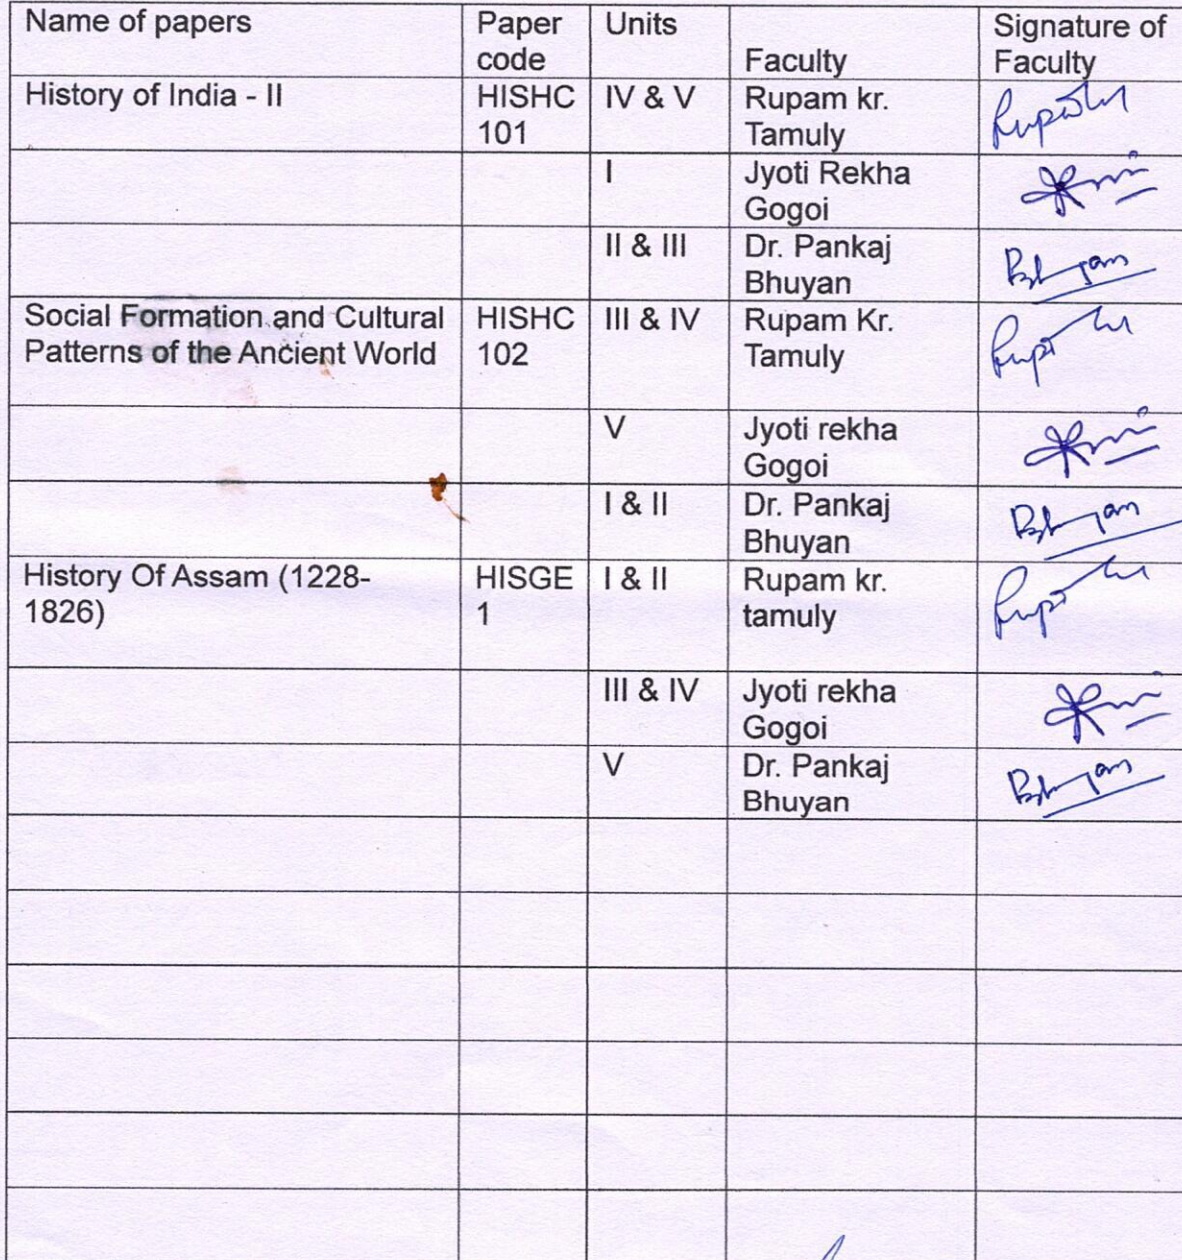 Name of papers
Paper
code
Units
Faculty
Signature of
Faculty
History of India - II
HISHC
101
IV & V
Rupam kr.
Tamuly
I
Jyoti Rekha
Gogoi
II & III
Dr. Pankaj
Bhuyan
Bhuyan
Social Formation and Cultural
Patterns of the Ancient World
HISHC
102
III & IV
Rupam Kr.
Tamuly
V
Jyoti rekha
Gogoi
I & II
Dr. Pankaj
Bhuyan
Bhuyan
History Of Assam (1228-
1826)
HISGE
1
I & II
Rupam kr.
tamuly
III & IV
Jyoti rekha
Gogoi
V
Dr. Pankaj
Bhuyan
Bhuyan